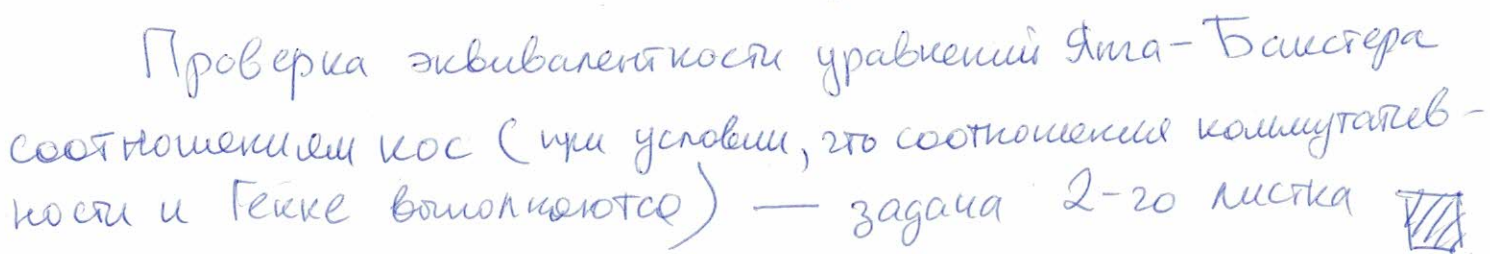 Проверка эквивалентности уравнений Янга-Бакстера
соотношениям кос (при условии, что соотношения коммутатив-
ности и Гекке выполняются) — задача 2-го листка